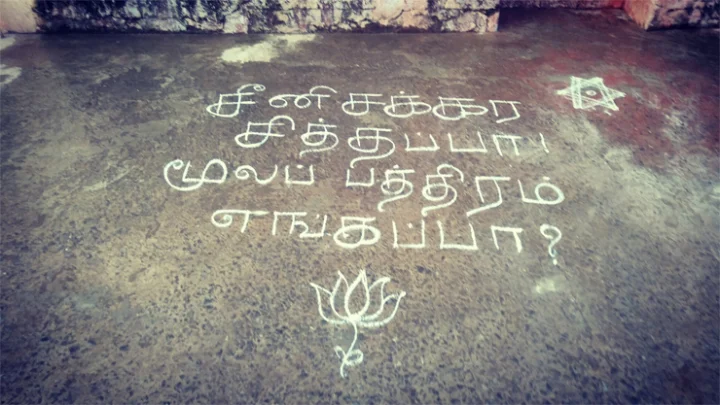 சீனி சக்கர
சித்தப்பா!
மூலப் பத்திரம்
எங்கப்பா?